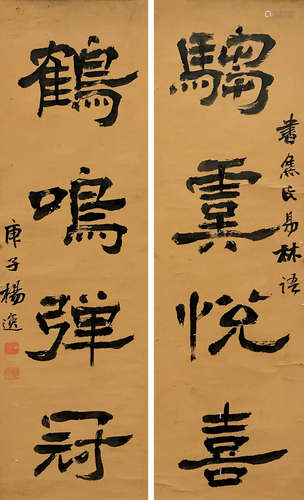 騶虞悅喜
書焦氏易林語
鶴鳴彈冠
庚子楊逸